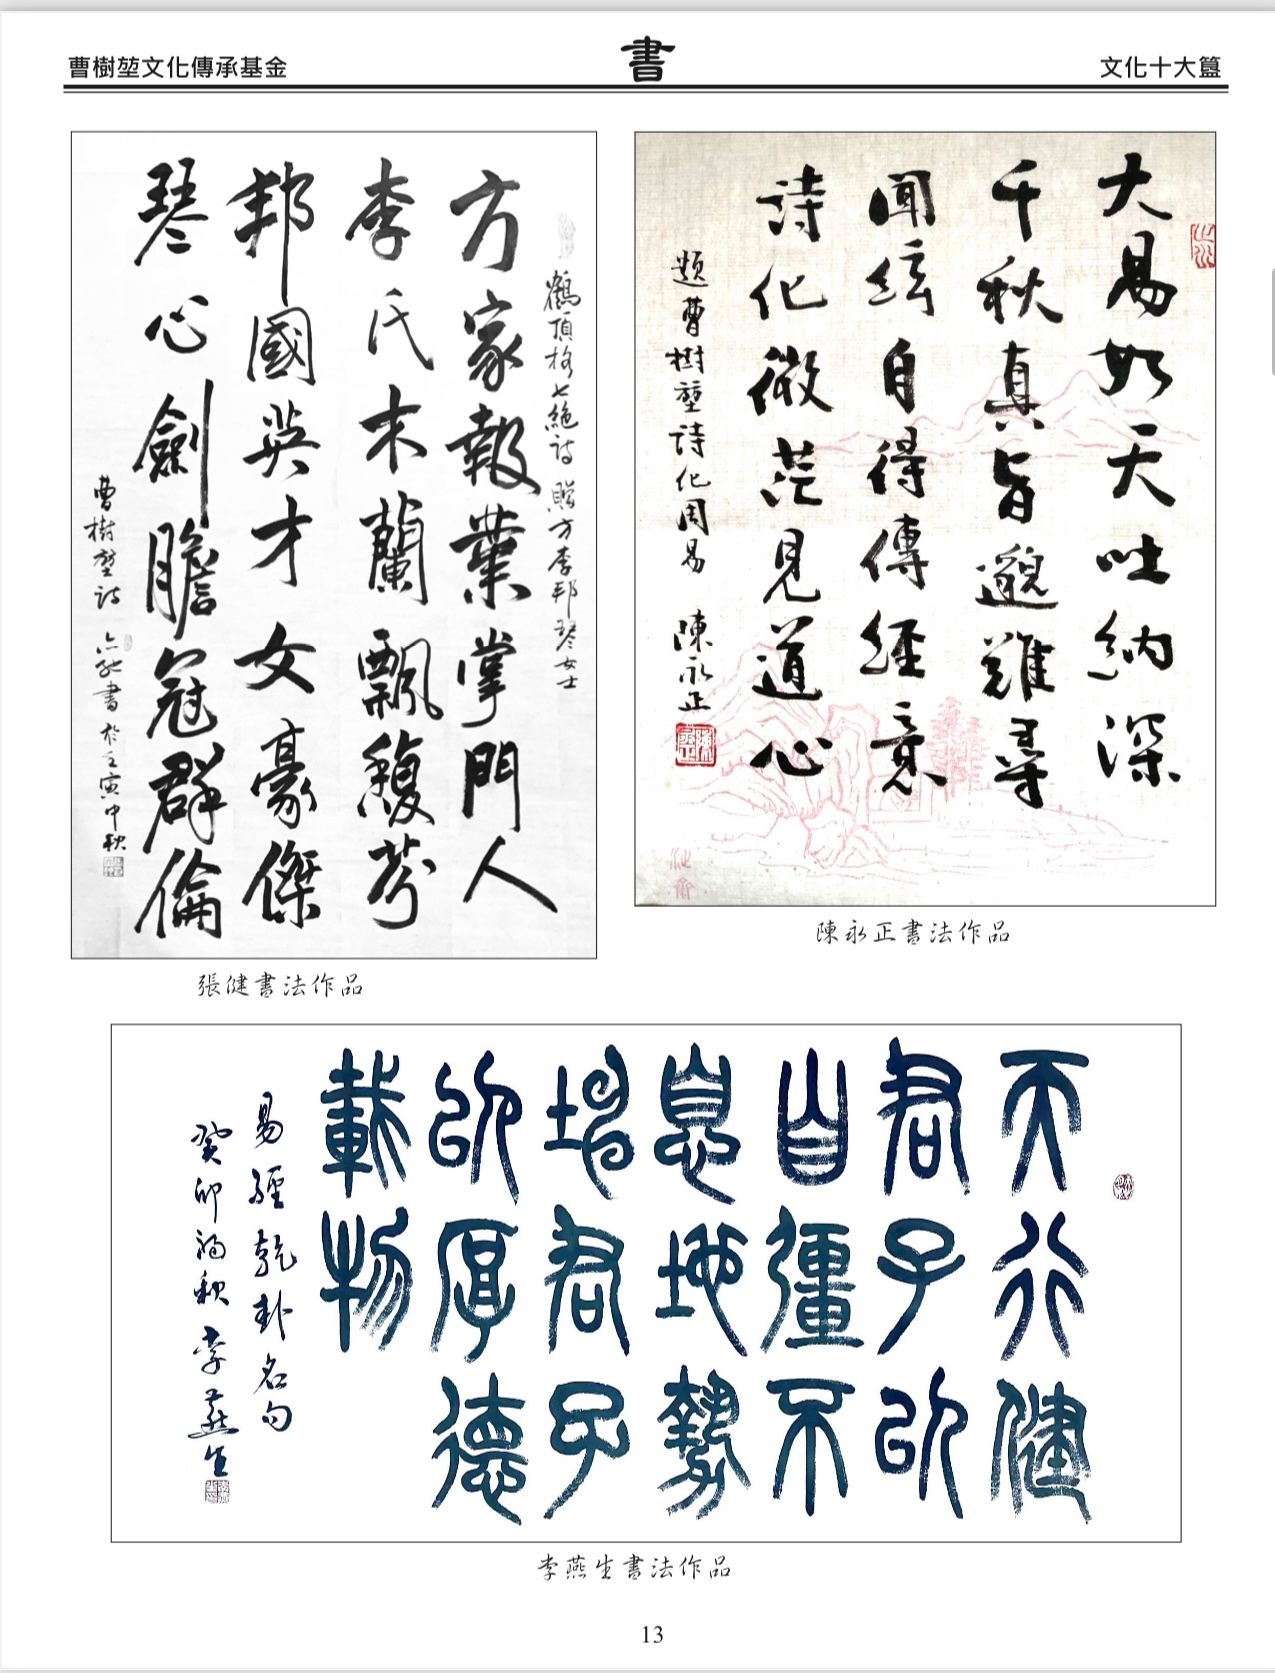 曹樹堃文化傳承基金
書
文化十大簋
鶴頂格七絶詩 贈方李邦琴女士
方家報業掌門人
李氏木蘭飄馥芬
邦國英才女豪傑
琴心劍膽冠群倫
曹樹堃詩
書於壬寅中秋
張健書法作品
大易如天吐納深
千秋真旨邈難尋
聞絃自得傳經意
詩化微茫見道心
題曹樹堃詩化周易 陳永正
陳永正書法作品
天行健
君子以
自彊不
息地勢
坤君子
以厚德
載物
易經乾卦名句
癸卯初秋李燕生
李燕生書法作品
13